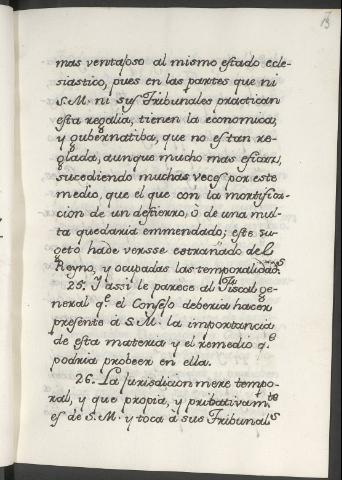 13
mas ventajoso al mismo estado ecle-
siastico, pues en las partes que ni
S.M. ni sus Tribunales practican
esta regalia, tienen la economica,
y gubernatiba, que no es tan re-
glada, aunque mucho mas
sucediendo muchas veces por este
medio, que el que con la mortifica-
cion de un destierro, ò de una mul-
ta quedaria emmendado; este su-
geto hade versse estrañado del
Reyno, y ocupadas las temporalidades
25. Y assi le parece al Fiscal ge-
neral q.e el Consejo deberia hacer
presente à S.M. la importancia
de esta materia y el remedio q.e
podria probeer en ella.
26. La Jurisdicion mere tempo-
ral, y que propia, y pribativam.te
es de S.M. y toca à sus Tribunal.s